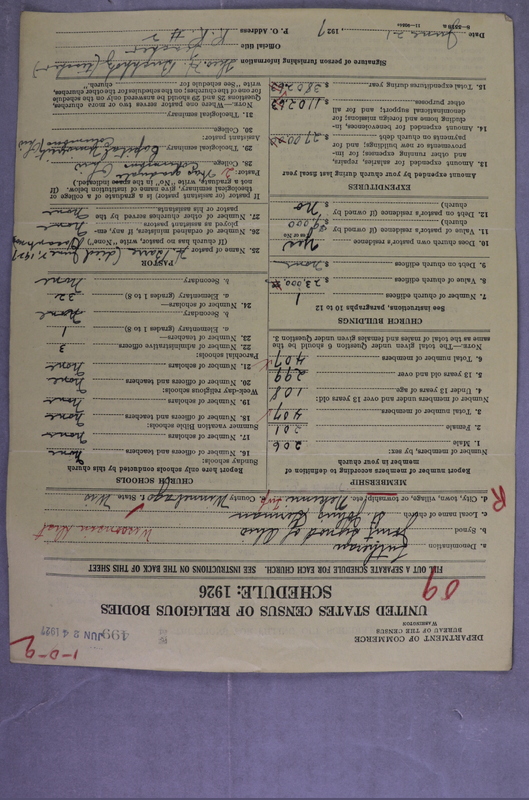 1-0-9
DEPARTMENT OF COMMERCE
BUREAU OF THE CENSUS
WASHINGTON
499 JUN 24 1927
UNITED STATES CENSUS OF RELIGIOUS BODIES
SCHEDULE: 1926
89
FILL OUT A SEPARATE SCHEDULE FOR EACH CHURCH. SEE INSTRUCTIONS ON THE BACK OF THIS SHEET
a. Denomination Lutheran
b. Synod Joint Synod of Ohio Wisconsin Dist
c. Local name of church
d. City, town, village, or township, etc. Nekimi Twp. County Winnebago State Wis
R
MEMBERSHIP
Report number of members according to definition of member in your church
Number of members, by sex:
1. Male 206
2. Female 201
3. Total number of members 407
Number of members under and over 13 years old:
4. Under 13 years of age 108
5. 13 years old and over 299
6. Total number of members 407
NOTE.—The total given under Question 6 should be the same as the total of males and females given under Question 3.
CHURCH BUILDINGS
See instructions, paragraphs 10 to 12
7. Number of church edifices 1
8. Value of church edifices $ 23,000.
9. Debt on church edifices $ none
10. Does church own pastor's residence Yes
(Yes or No)
11. Value of pastor's residence (if owned by church) $ 9,000
12. Debt on pastor's residence (if owned by church) $ No
EXPENDITURES
Amount expended by your church during last fiscal year
13. Amount expended for salaries, repairs, and other running expenses; for improvements or new buildings; and for payments on church debt $ 2700
14. Amount expended for benevolences, including home and foreign missions; for denominational support; and for all other purposes $ 1102.63
15. Total expenditures during year $ 3802.63
CHURCH SCHOOLS
Report here only schools conducted by this church
Sunday schools:
16. Number of officers and teachers None
17. Number of scholars None
Summer vacation Bible schools:
18. Number of officers and teachers None
19. Number of scholars None
Week-day religious schools:
20. Number of officers and teachers None
21. Number of scholars None
Parochial schools:
22. Number of administrative officers 3
23. Number of teachers—
a. Elementary (grades 1 to 8) 1
b. Secondary None
24. Number of scholars—
a. Elementary (grades 1 to 8) 32
b. Secondary None
PASTOR
25. Name of pastor (died June 7, 1927)
(If church has no pastor, write "None") (Vacancy)
26. Number of ordained ministers, if any, employed as assistant pastors None
27. Number of other churches served by the pastor or his assistants None
If pastor (or assistant pastor) is a graduate of a college or theological seminary, give name of institution below. (If not a graduate, write "No" in the space indicated).
Pastor: Was graduate
28. College Columbus Ohio
29. Theological seminary Capital University Columbus Ohio
Assistant pastor:
30. College
31. Theological seminary
NOTE.—Where one pastor serves two or more churches, Questions 28 and 29 should be answered only on the schedule for one of the churches; on the schedules for the other churches, write "See schedule for church."
Signature of person furnishing information
Official title Teacher
P. O. Address R. R. # 2
Date June 21, 1927